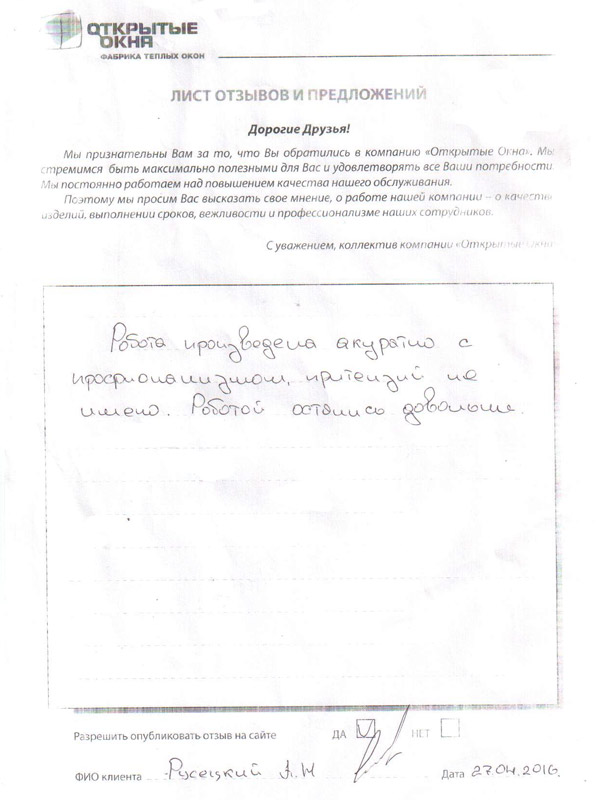 ОТКРЫТЫЕ
ОКНА
ФАБРИКА ТЕПЛЫХ ОКОН
ЛИСТ ОТЗЫВОВ И ПРЕДЛОЖЕНИЙ
Дорогие Друзья!
Мы признательны Вам за то, что Вы обратились в компанию «Открытые Окна». Мы
стремимся быть максимально полезными для Вас и удовлетворять все Ваши потребности.
Мы постоянно работаем над повышением качества нашего обслуживания.
Поэтому мы просим Вас высказать свое мнение, о работе нашей компании – о качестве
изделий, выполнении сроков, вежливости и профессионализме наших сотрудников.
С уважением, коллектив компании «Открытые Окна»
Робота произведена акуратно с
професионализмом, притензий не
имею. Роботой остались довольны.
Разрешить опубликовать отзыв на сайте ДА НЕТ
ФИО клиента Русецкий А.Н Дата 27.04.2016.